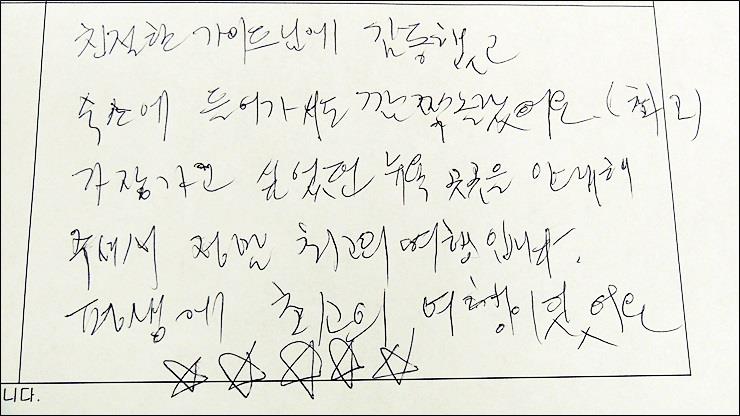 친절한 가이드님에 감동했고
숙소에 들어가서도 깜짝놀랬어요. (최고)
가장가고 싶었던 뉴욕 곳곳을 안내해
주셔서 정말 최고의 여행입니다.
평생에 최고의 여행이였어요
☆☆☆☆☆
니다.